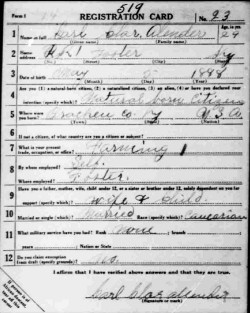 Form 1
519
REGISTRATION CARD
No. 23
1 Name in full Karl Clar Alender
(Given name) (Family name)
Age, in yrs. 29
2 Home address R#1 Foster Ky
(No.) (Street) (City) (State)
3 Date of birth May 1888
(Month) (Day) (Year)
4 Are you (1) a natural-born citizen, (2) a naturalized citizen, (3) an alien, (4) or have you declared your intention (specify which)?
Natural born Citizen
5 Where were you born? Bracken Co. Ky U.S.A.
(Town) (State) (Nation)
6 If not a citizen, of what country are you a citizen or subject?
7 What is your present trade, occupation, or office? Farming 1
8 By whom employed? Self.
Where employed? Foster
9 Have you a father, mother, wife, child under 12, or a sister or brother under 12, solely dependent on you for support (specify which)?
Wife & Child.
10 Married or single (which)? Married Race (specify which)? Caucasian
11 What military service have you had? Rank None ; branch
years ; Nation or State
12 Do you claim exemption from draft (specify grounds)? No.
I affirm that I have verified above answers and that they are true.
Karl Clar Allender
(Signature or mark)